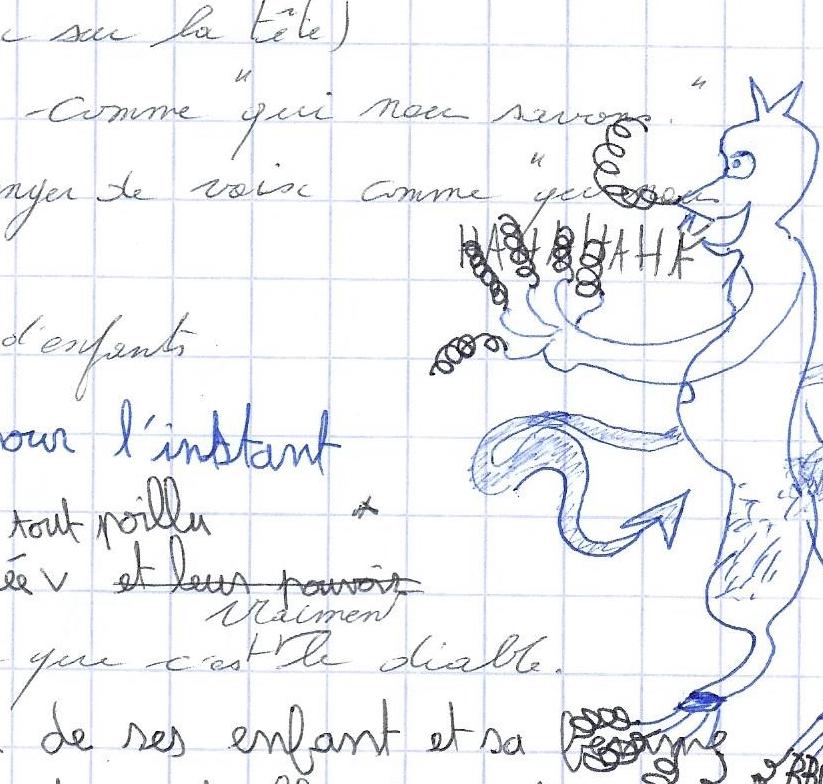 sur la tête)
-comme "qui nou savons."
de voix comme "qui nou
HAHAHAHA
d'enfants
our l'instant
tout poillu
ée V et leur pouvoir
vraiment
que c'est le diable.
de ses enfant et sa femme